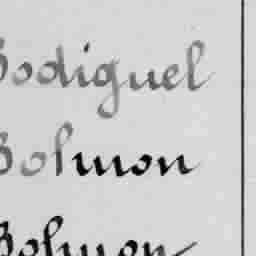 Bodiguel
Bolmon
Bolmon